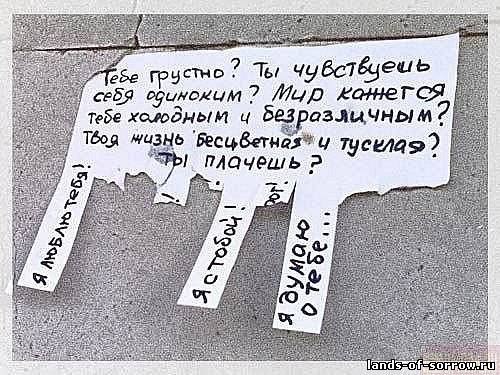 Тебе грустно? Ты чувствуешь
себя одиноким? Мир кажется
тебе холодным и безразличным?
Твоя жизнь бесцветная и тусклая?
Ты плачешь?
Я люблю тебя!
Я с тобой!
Я думаю
о тебе...
lands-of-sorrow.ru